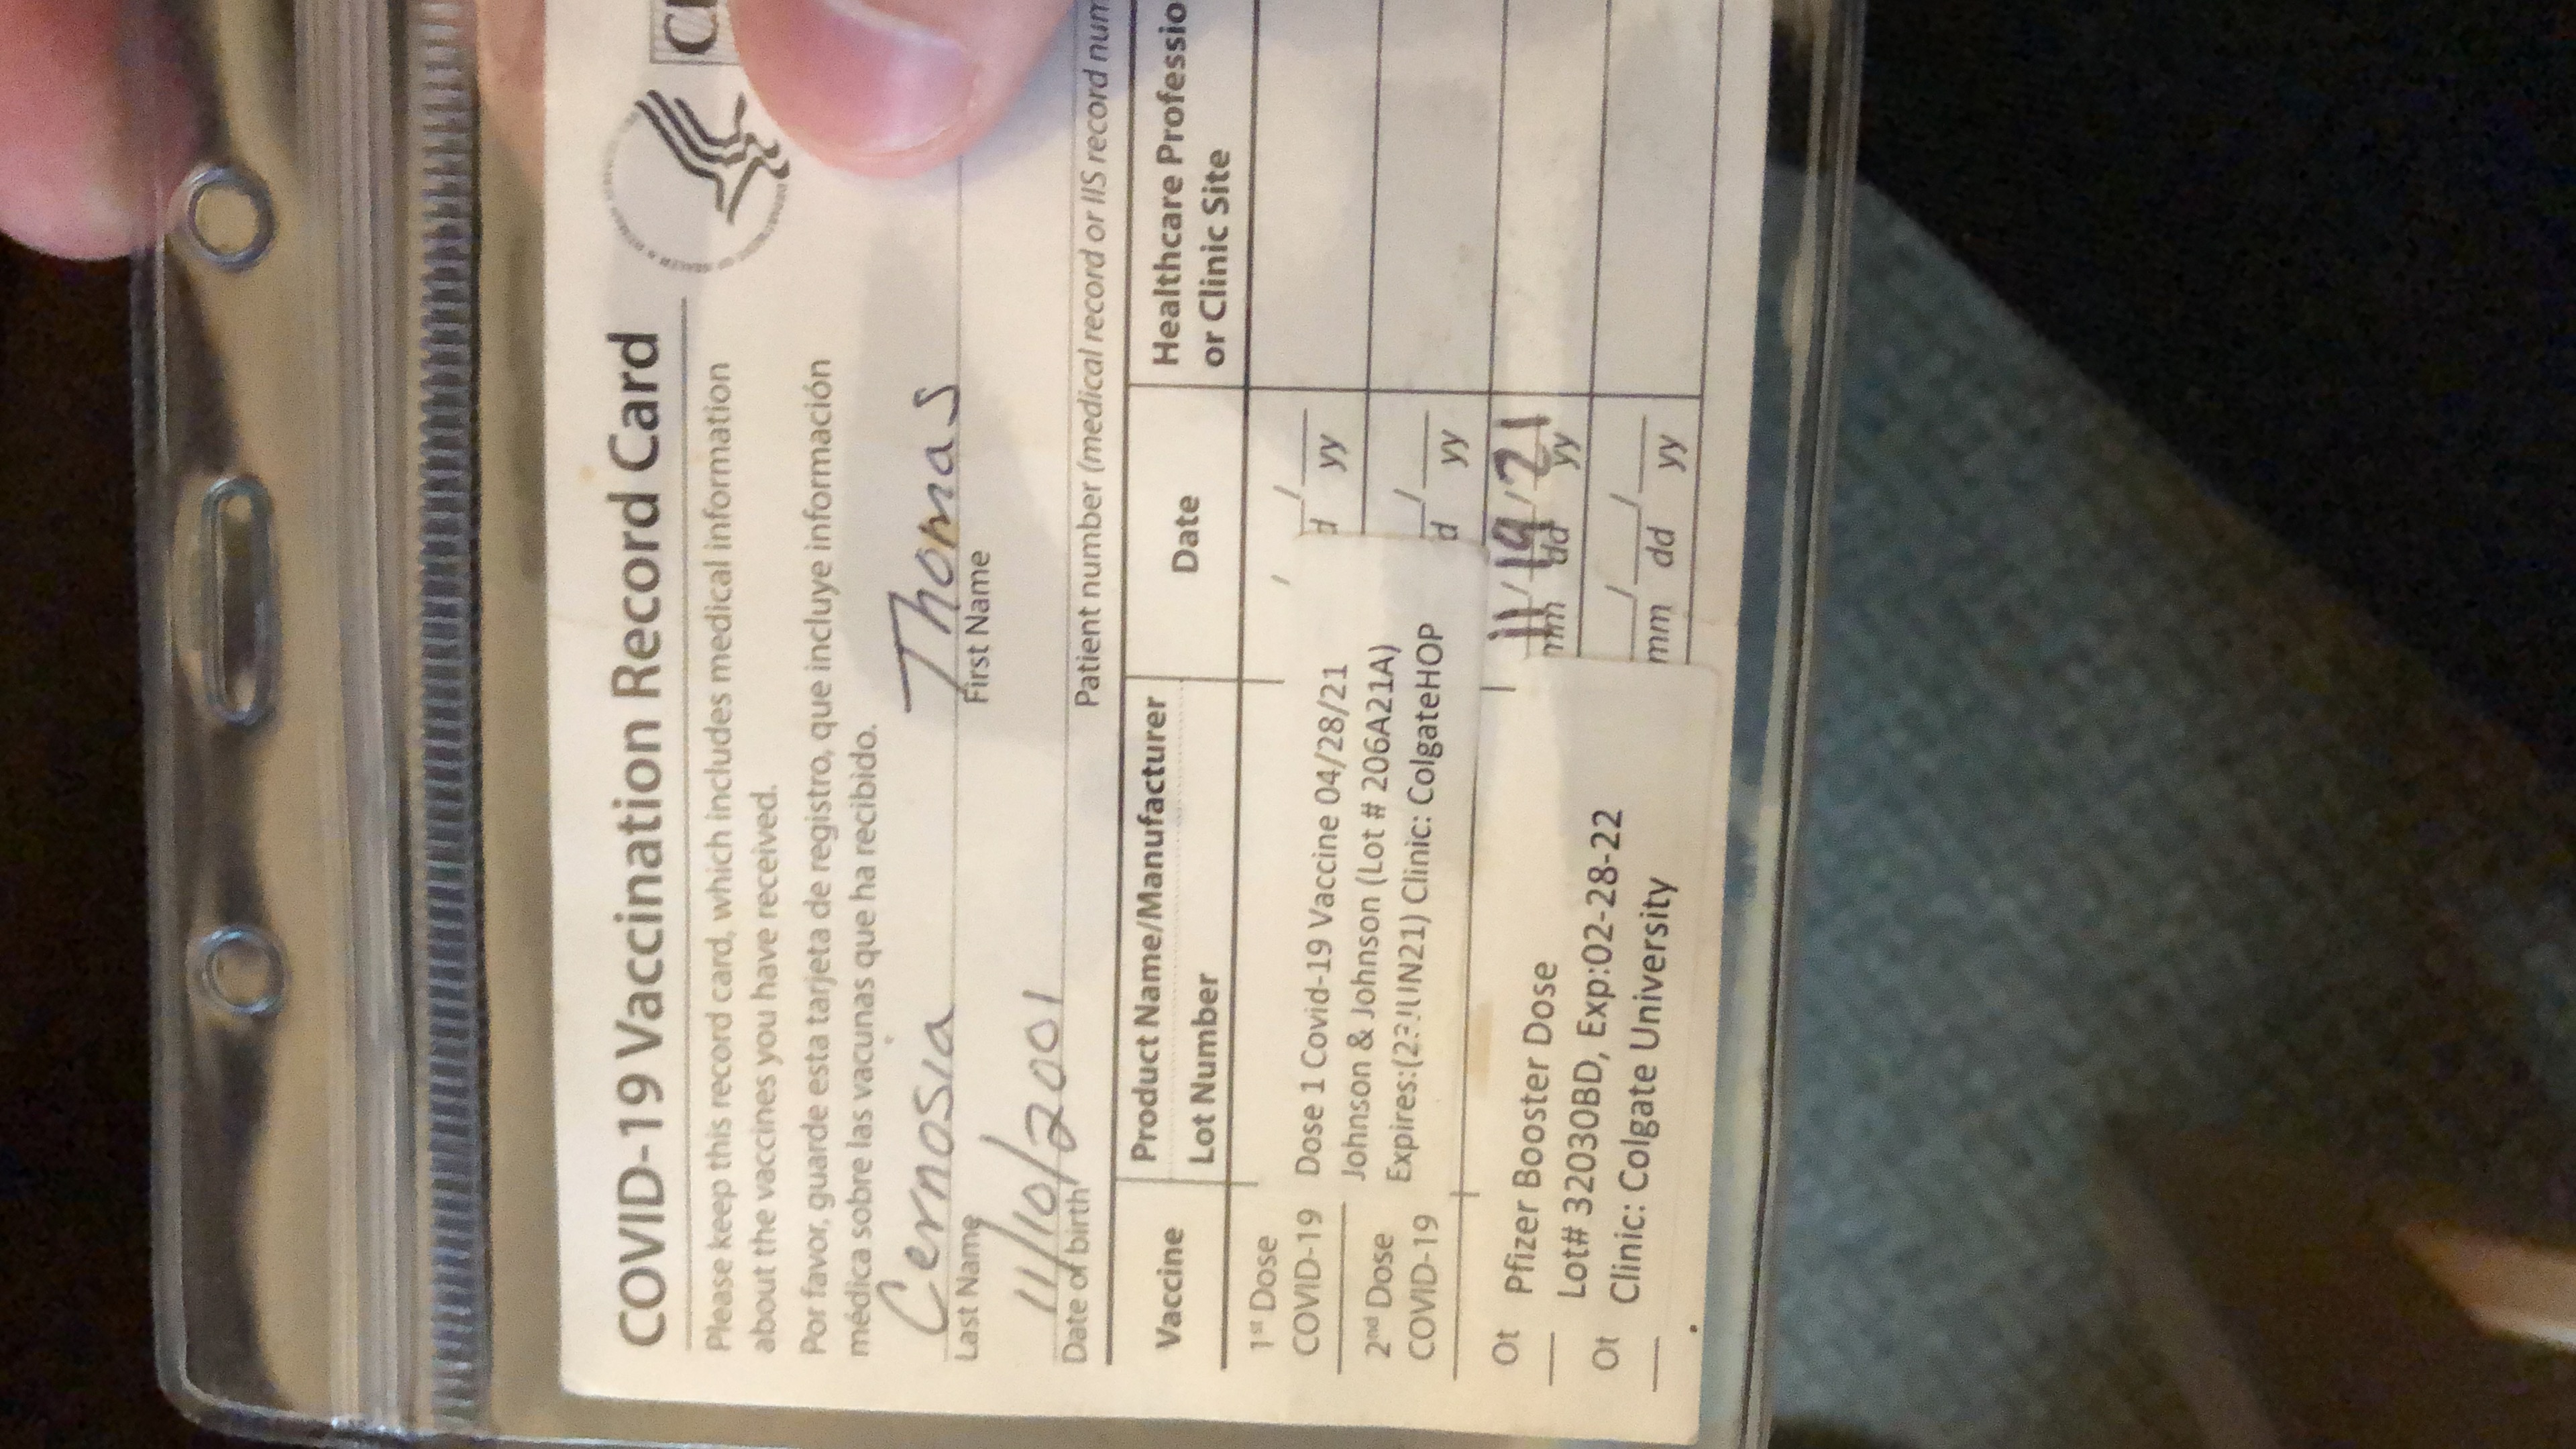 COVID-19 Vaccination Record Card
Please keep this record card, which includes medical information
about the vaccines you have received.
Por favor, guarde esta tarjeta de registro, que incluye información
médica sobre las vacunas que ha recibido.
Cernosia Thomas
Last Name First Name
11/10/2001
Date of birth Patient number (medical record or IIS record num
Vaccine Product Name/Manufacturer Date Healthcare Professio
Lot Number or Clinic Site
1st Dose
COVID-19 Dose 1 Covid-19 Vaccine 04/28/21 d yy
Johnson & Johnson (Lot # 206A21A)
2nd Dose
COVID-19 Clinic: ColgateHOP d yy
Ot Pfizer Booster Dose 11/19/21
mm dd yy
Lot# 32030BD, Exp:02-28-22
Ot Clinic: Colgate University mm dd yy